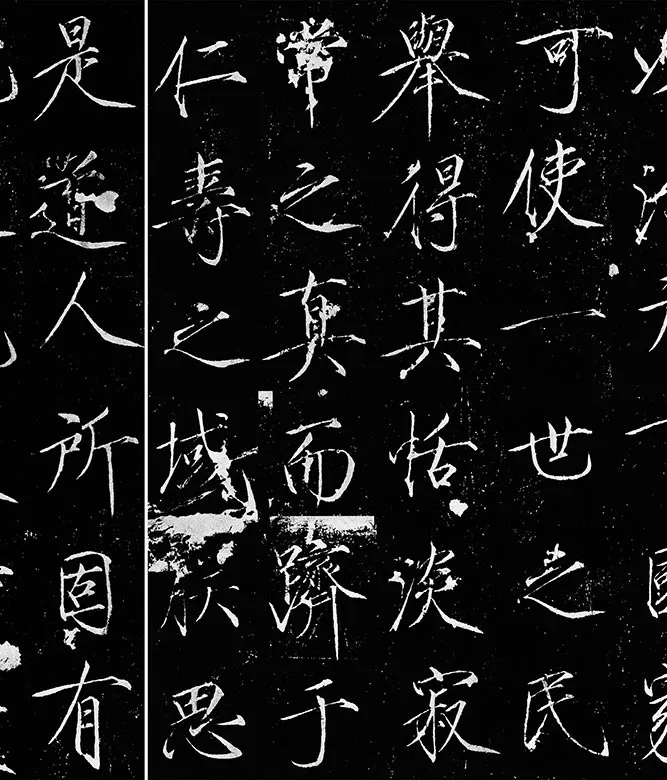 可使一世之民
舉得其恬淡寂
常之真而躋于
仁壽之域朕思
是道人所固有